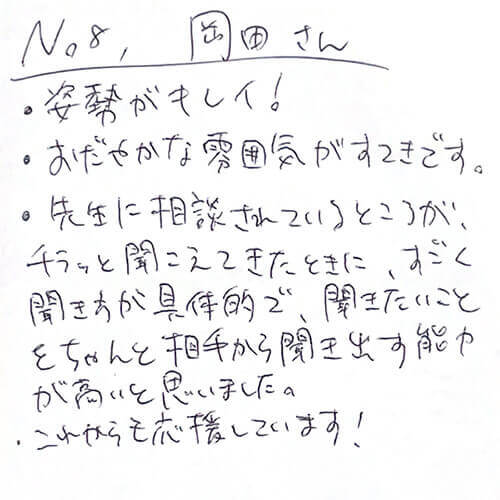 No.8, 岡田さん
・姿勢がキレイ!
・おだやかな雰囲気がすてきです。
・先生に相談されているところが、
チラッと聞こえてきたときに、すごく
聞き方が具体的で、聞きたいこと
をちゃんと相手から聞き出す能力
が高いと思いました。
・これからも応援しています!